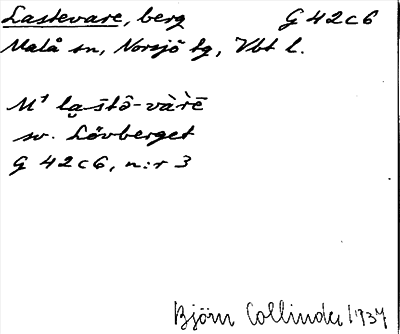 Lastevare, berg G 42 c 6
Malå sn, Norsjö tg, Vbt l.
M¹ la̮s̄tô-và̀rē
sv. Lövberget
G 42 c 6, n:r 3
Björn Collinder 1937